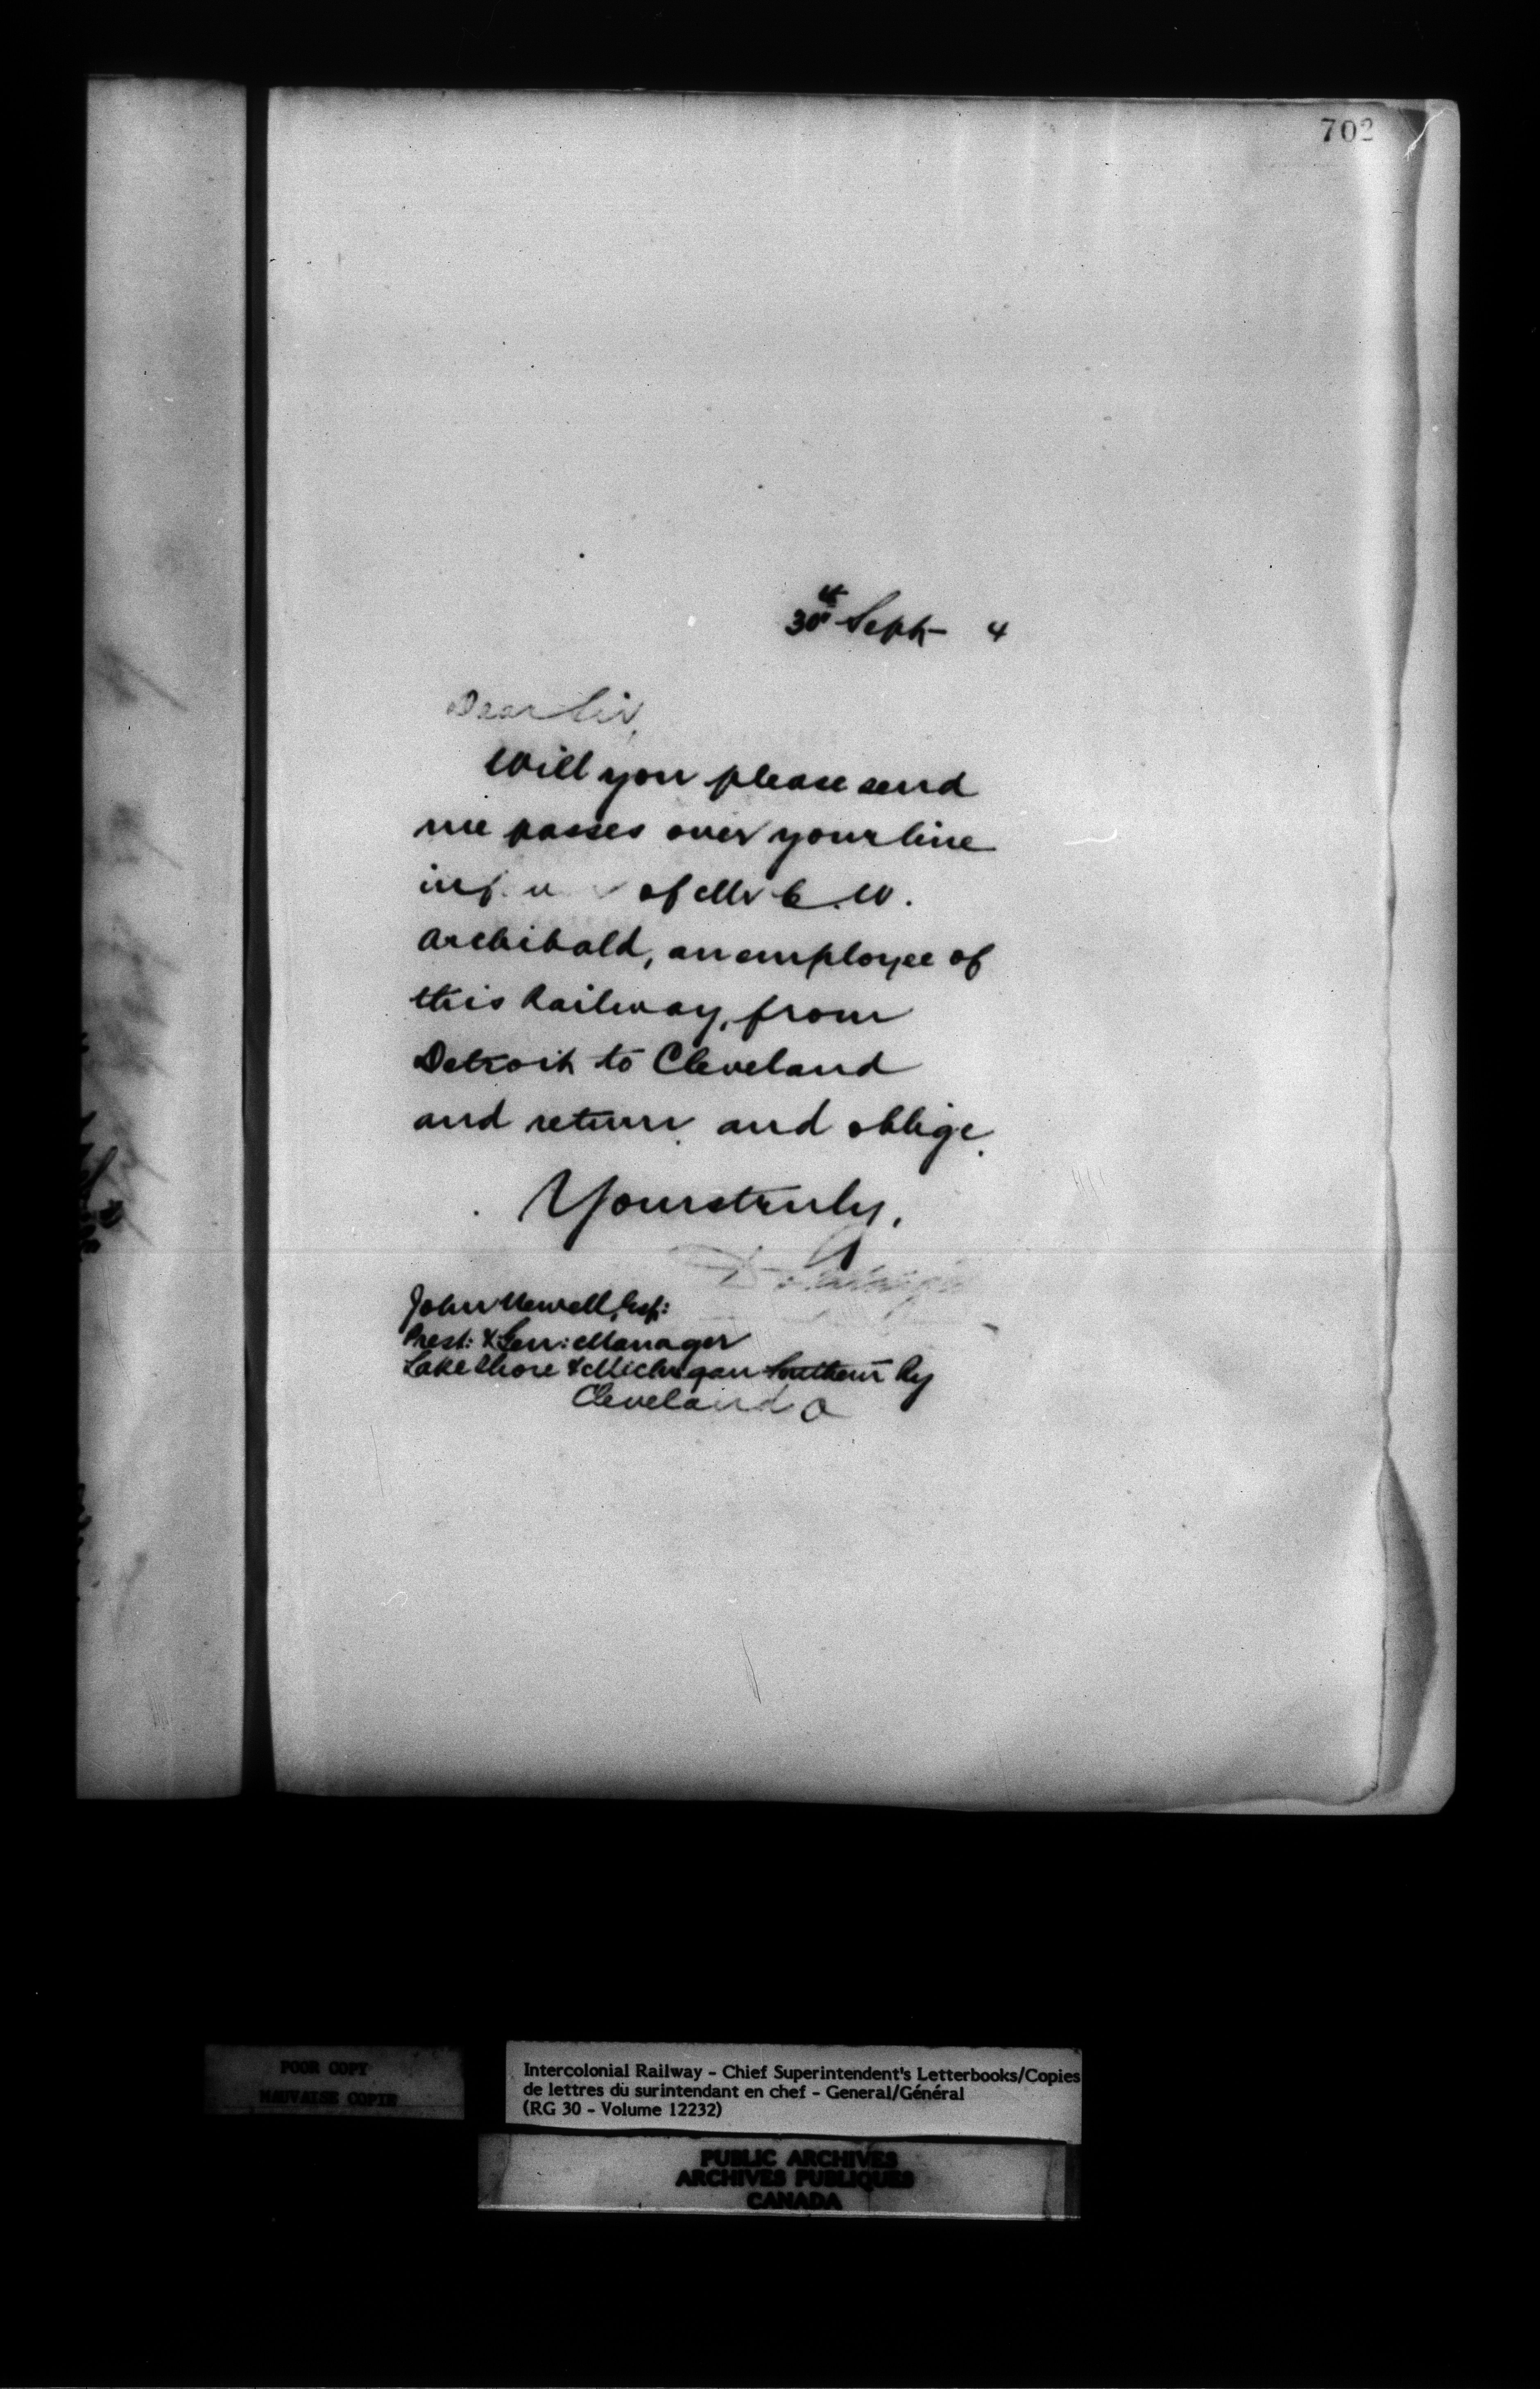 702
30th Sept 4
Dear Sir,
Will you please send
me passes over your line
in of Mr C. W.
Archibald, an employee of
this Railway, from
Detroit to Cleveland
and return and oblige.
Yours truly,
John Newell, Esq:
Prest: & Gen: Manager
Lake Shore & Michigan Southern Ry
Cleveland O
POOR COPY
MAUVAISE COPIE
Intercolonial Railway – Chief Superintendent's Letterbooks/Copies
de lettres du surintendant en chef – General/Général
(RG 30 – Volume 12232)
PUBLIC ARCHIVES
ARCHIVES PUBLIQUES
CANADA